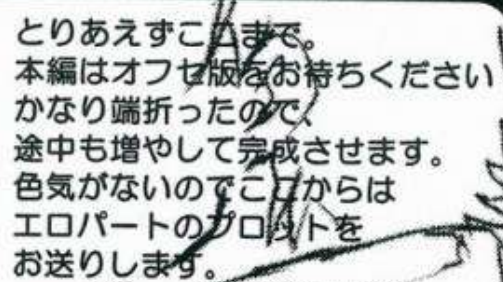 とりあえずここまで。
本編はオフセ版をお待ちください
かなり端折ったので、
途中も増やして完成させます。
色気がないのでここからは
エロパートのプロットを
お送りします。